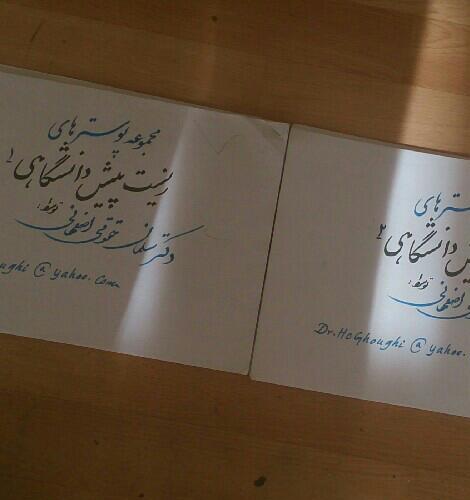 مجموعه پوسترهای
زیست پیش دانشگاهی 1
توسط:
دکتر سلمانی حقوقی اصفهانی
oughi @ yahoo. com
سترهای
ش دانشگاهی 2
توسط:
اصفهانی
Dr. Hoghoughi @ yahoo.